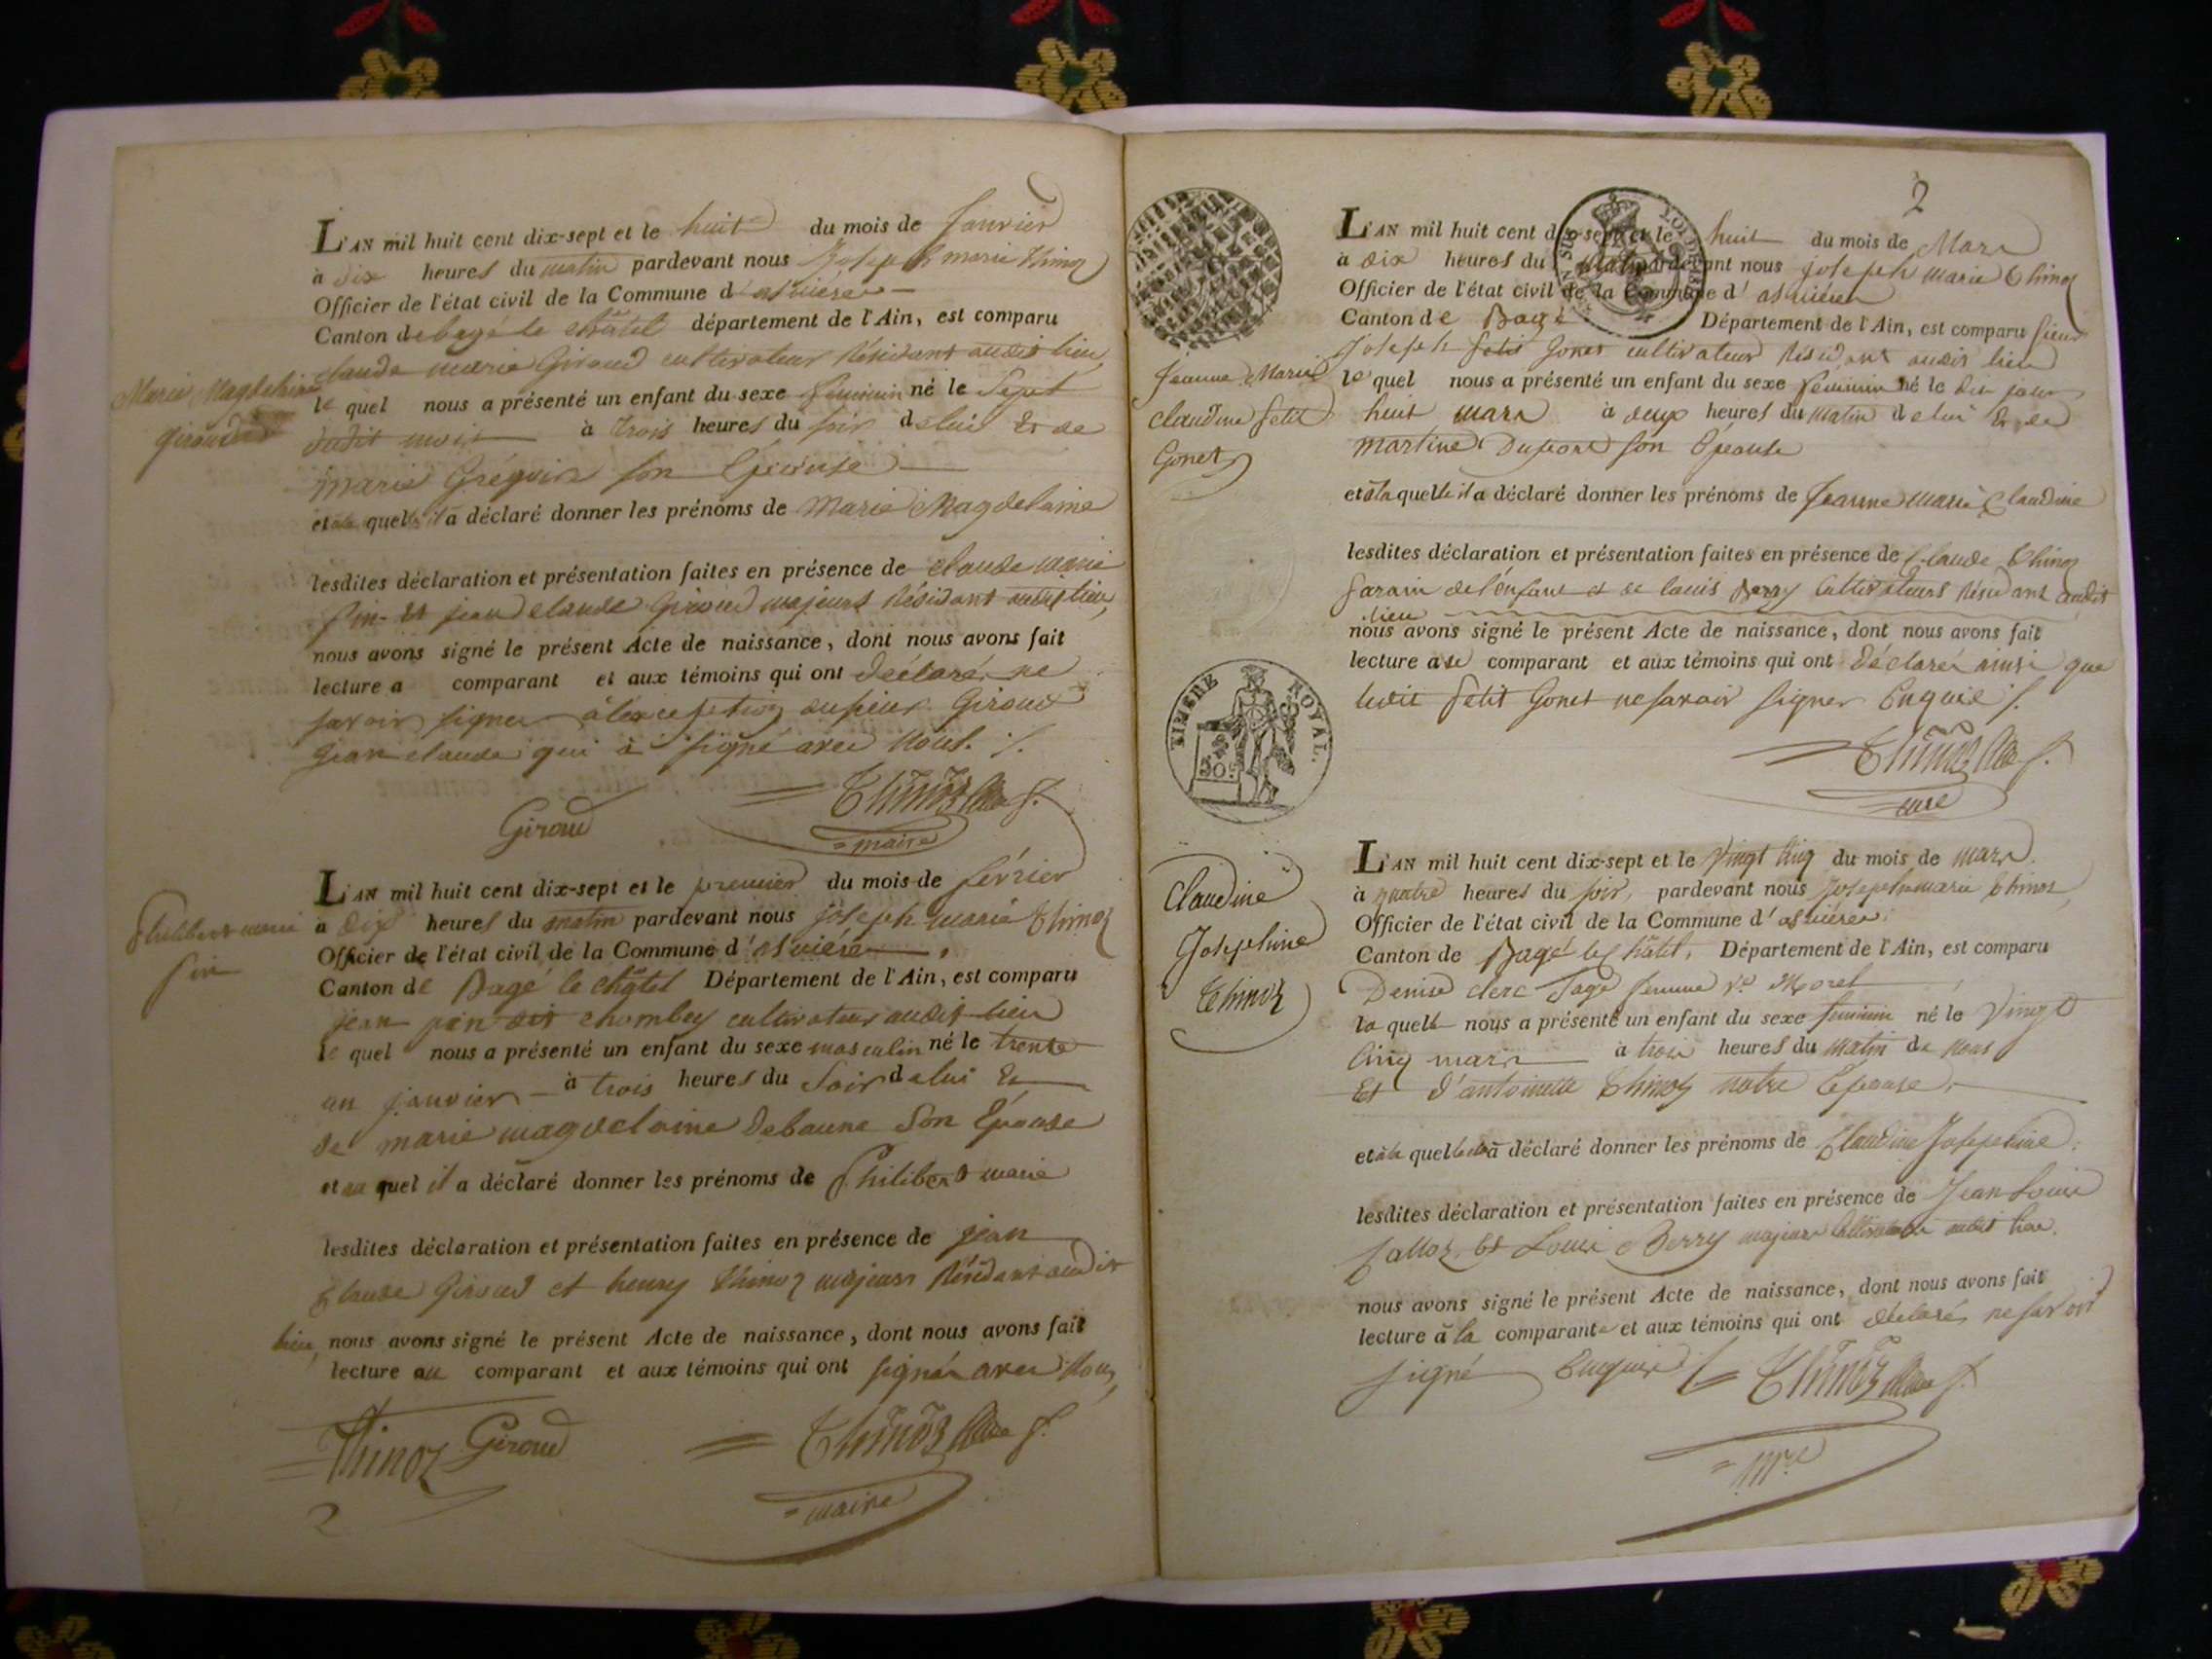 L'AN mil huit cent dix-sept et le huit du mois de Janvier
à dix heures du matin pardevant nous Joseph marie Thinoz
Officier de l'état civil de la Commune d'asnières
Canton de bagé le châtel département de l'Ain, est comparu
claude marie Giroud cultivateur Résidant audit lieu
Marie Magdelaine
Giroud
le quel nous a présenté un enfant du sexe féminin né le Sept
dudit mois à trois heures du soir de lui & de
marie Grégoire son Epouse
et à la quelle il a déclaré donner les prénoms de Marie Magdelaine
lesdites déclaration et présentation faites en présence de claude marie
pin et jean claude Giroud majeurs Résidant audit lieu,
nous avons signé le présent Acte de naissance, dont nous avons fait
lecture a comparant et aux témoins qui ont déclaré ne
savoir signer à l'exception du sieur Giroud
jean claude qui à signé avec nous ./.
Giroud
Thinoz
= maire
L'AN mil huit cent dix-sept et le premier du mois de février
Philibert marie
pin
à dix heures du matin pardevant nous joseph marie Thinoz
Officier de l'état civil de la Commune d'asnières
Canton de Bagé le châtel Département de l'Ain, est comparu
jean pin dit chambey cultivateur audit lieu
le quel nous a présenté un enfant du sexe masculin né le trente
un janvier à trois heures du Soir de lui &
de marie magdelaine Debaune Son Epouse
et au quel il a déclaré donner les prénoms de Philibert marie
lesdites déclaration et présentation faites en présence de jean
Claude Giroud et henry Thinoz majeurs Résidant audit
lieu, nous avons signé le présent Acte de naissance, dont nous avons fait
lecture au comparant et aux témoins qui ont signés avec nous,
Thinoz Giroud
Thinoz
= maire
2
2
L'AN mil huit cent dix-sept et le huit du mois de Mars
à dix heures du matin pardevant nous joseph marie Thinoz
Officier de l'état civil de la Commune d'asnières
Canton de Bagé Département de l'Ain, est comparu sieur
Joseph Petit Gonet cultivateur Résidant audit lieu
Jeanne Marie
claudine Petit
Gonet
le quel nous a présenté un enfant du sexe féminin né le dit jour
huit mars à deux heures du matin de lui & de
martine Dupont son Epouse
et à la quelle il a déclaré donner les prénoms de Jeanne marie Claudine
lesdites déclaration et présentation faites en présence de Claude Thinoz
parain de l'enfant et de louis Berry Cultivateurs Résidant audit
lieu
nous avons signé le présent Acte de naissance, dont nous avons fait
lecture au comparant et aux témoins qui ont déclarés ainsi que
ledit Petit Gonet ne savoir signer Enquis ./.
TIMBRE ROYAL.
50c
Thinoz
= mre
L'AN mil huit cent dix-sept et le Vingt Cinq du mois de mars
Claudine
Josephine
Thinoz
à quatre heures du soir, pardevant nous Joseph marie Thinoz
Officier de l'état civil de la Commune d'asnières
Canton de Bagé le Châtel, Département de l'Ain, est comparu
Denise clerc Sage femme ve Morel
la quelle nous a présenté un enfant du sexe féminin né le Vingt
Cinq mars à trois heures du matin de nous
Et d'antoinette Thinoz notre Epouse
et à la quelle a déclaré donner les prénoms de Claudine Josephine
lesdites déclaration et présentation faites en présence de Jean Louis
Et Louis Berry majeurs Cultivateurs audit lieu.
nous avons signé le présent Acte de naissance, dont nous avons fait
lecture à la comparante et aux témoins qui ont déclarés ne savoir
signé Enquis ./.
Thinoz
= mre